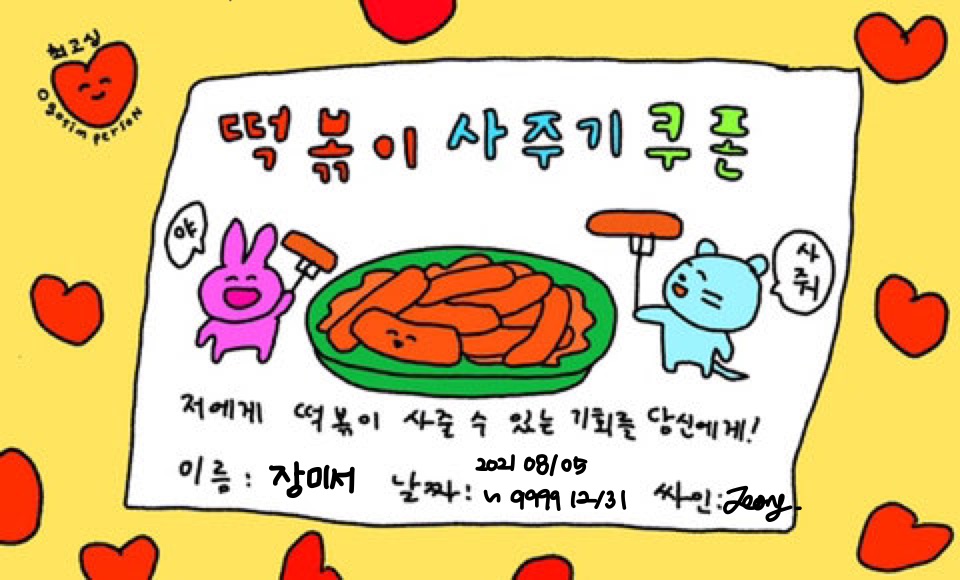 최고심
Ogosim person
떡볶이 사주기 쿠폰
야
사
줘
저에게 떡볶이 사줄 수 있는 기회를 당신에게!
이름: 장미서 날짜: 2021 08/05
~ 9999 12/31 싸인: Jeong.